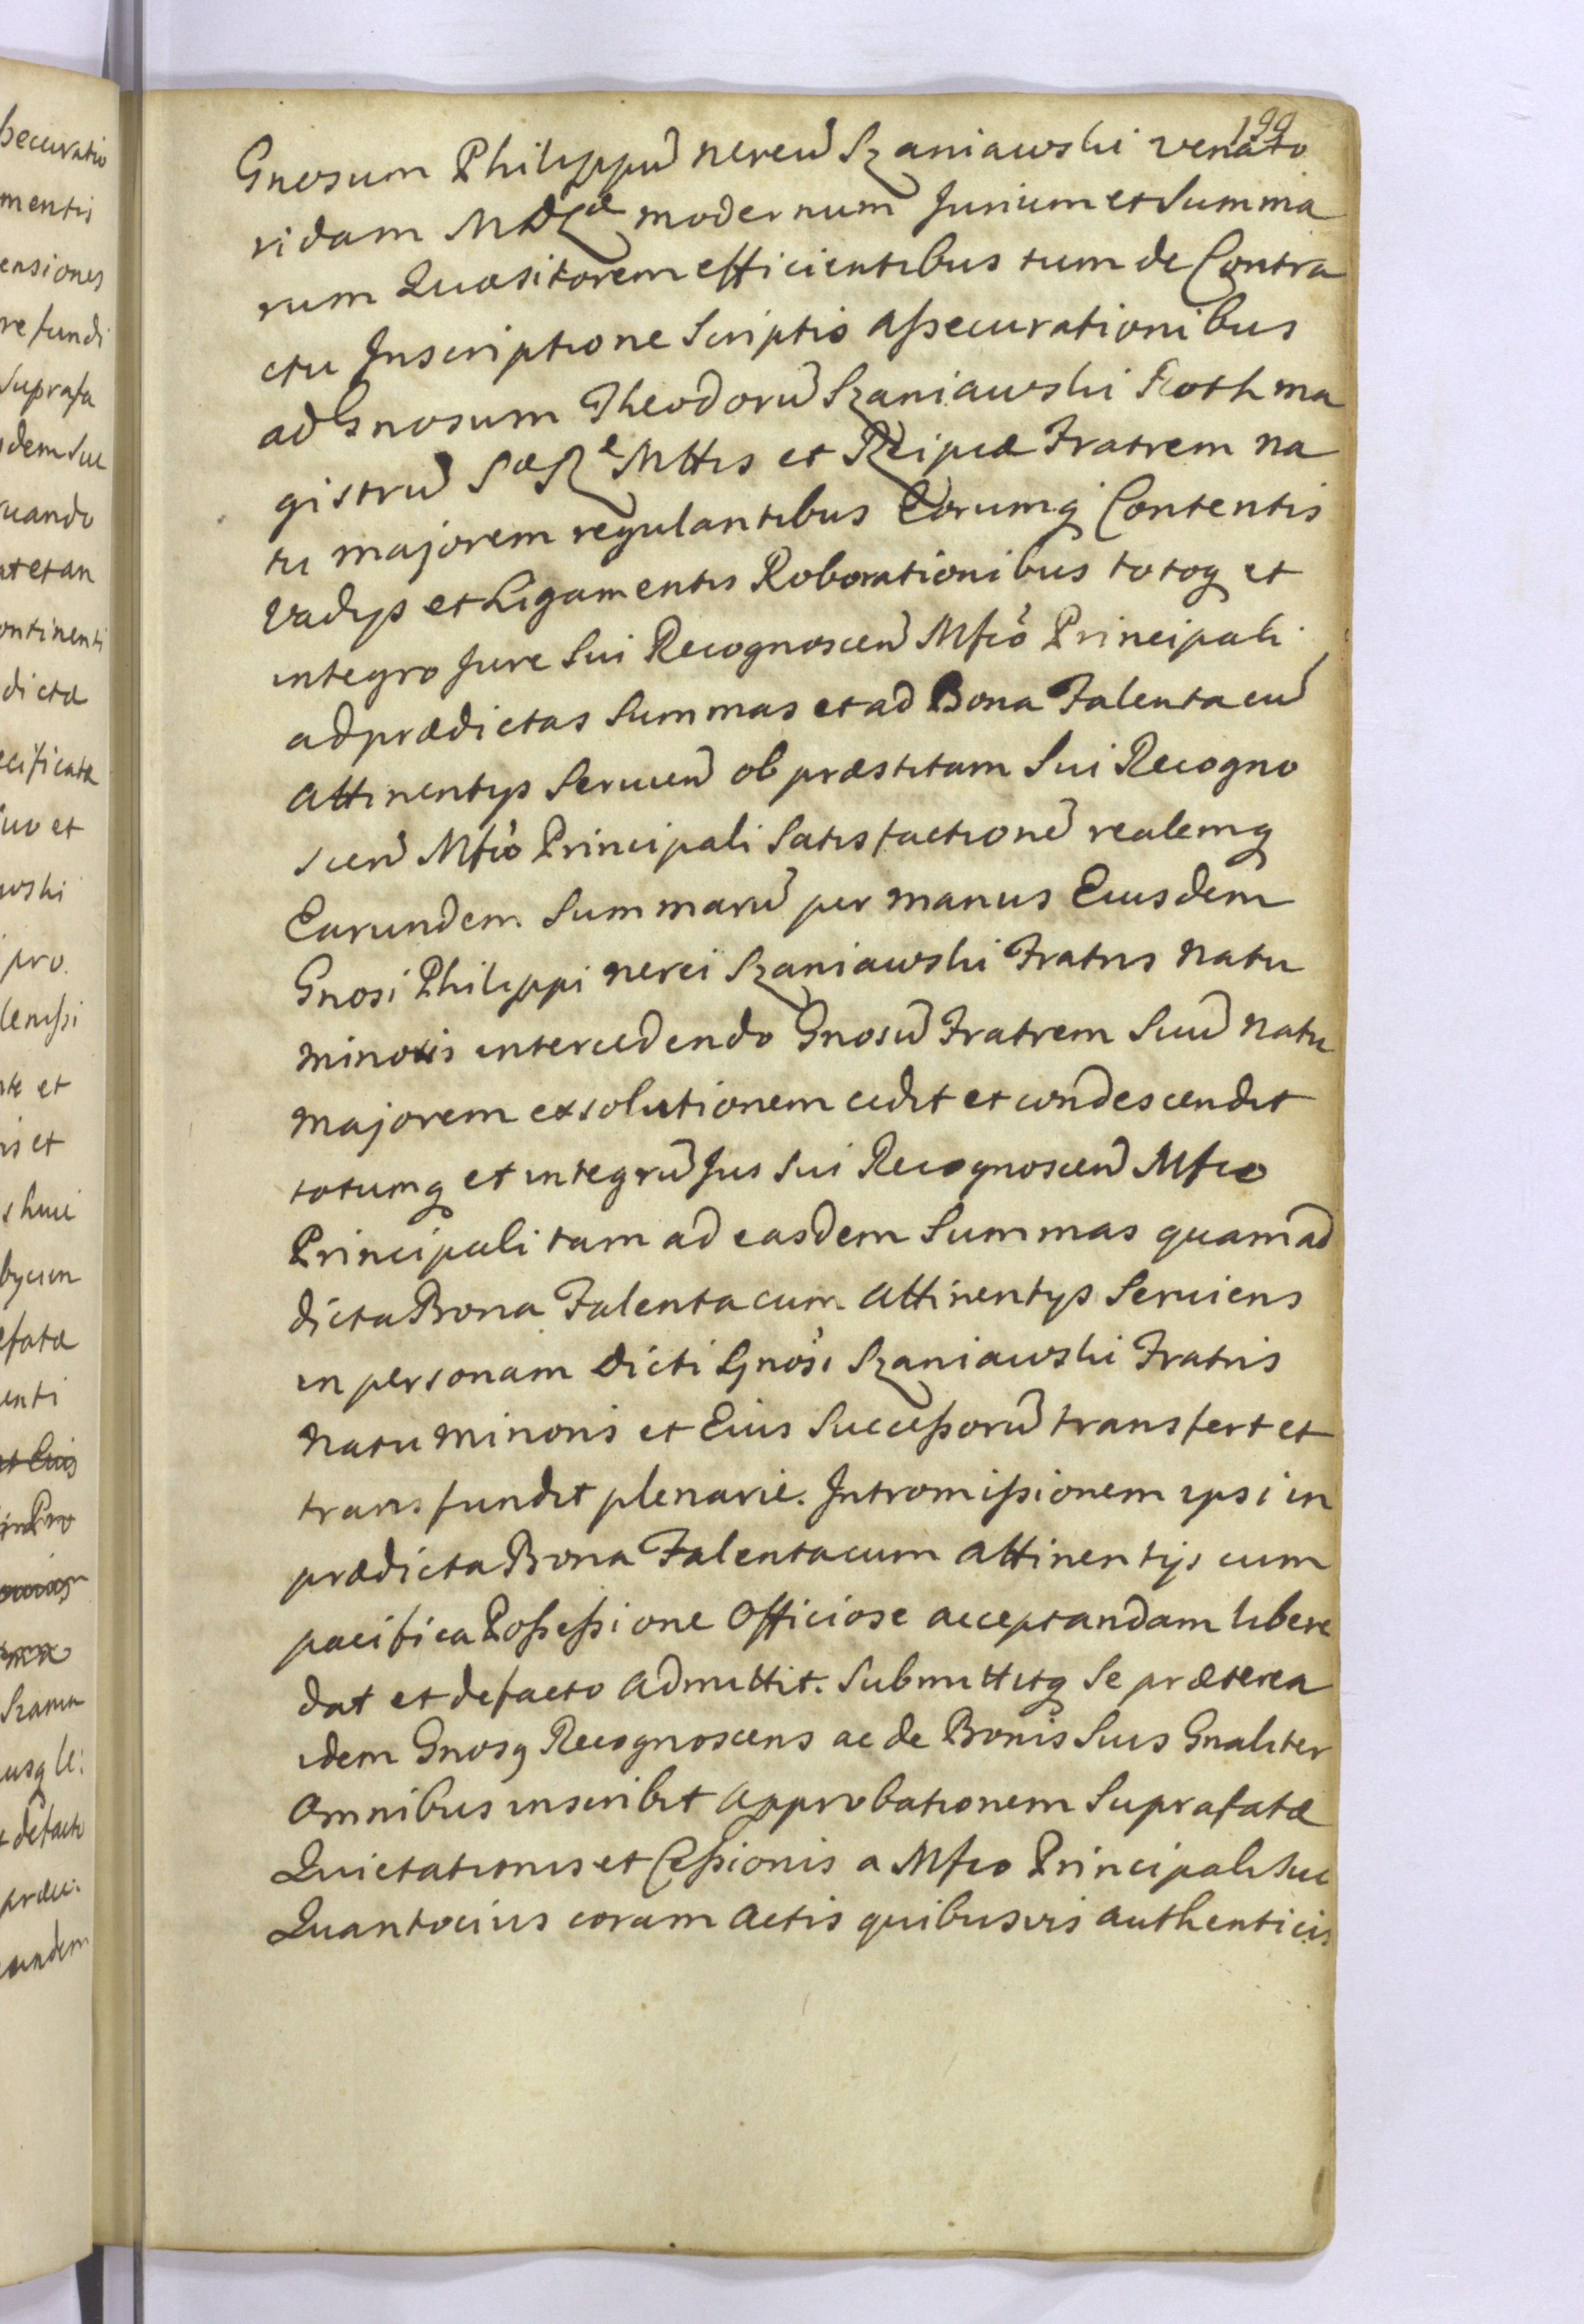 199
Gnosum Philippũ nereũ Szaniawski venato
ridam modernum Jurium et Summa
rum Quæsitorem efficientibus tum de Contra
ctu Inscriptione Scriptis Aßecurationibus
ad Gnosum Theodorũ Szaniawski Rothma
gistrũ Mttis et Reipcæ Fratrem na
tu majorem regulantibus Eorumq Contentis
Vadijs et Ligamentis Roborationibus totoq et
integro Jure Sui Recognoscen̄ Mfco Principali
ad prædictas Summas et ad Bona Falenta cũ
Attinentijs Seruien̄ ob præstitam Sui Recogno
scen̄ Mfco Principali Satisfactionẽ realemq
Earundem Summarũ per manus Eiusdem
Gnosi Philippi nereï Szaniawski Fratris Natu
minoris intercedendo Gnosũ Fratrem Suũ Natu
Majorem exsolutionem cedit et condescendit
totumq et integrũ Jus Sui Recognoscen̄ Mfco
Principali tam ad easdem Summas quam ad
dicta Bona Falenta cum Attinentijs Seruiens
in personam Dicti Gnosi Szaniawski Fratris
Natu Minoris et Eius Succeßorũ transfert et
transfundit plenarie. Intromißionem ipsi in
prædicta Bona Falenta cum Attinentijs cum
pacifica Poßeßione Officiose acceptandam libere
dat et defacto Admittit. Submittitq Se præterea
idem Gnosq Recognoscens ac de Bonis Suis Gnaliter
Omnibus inscribit Approbationem Suprafatæ
Quietationis et Ceßionis a Mfco Principali Suo
Quantocius coram Actis quibusvis Authenticis